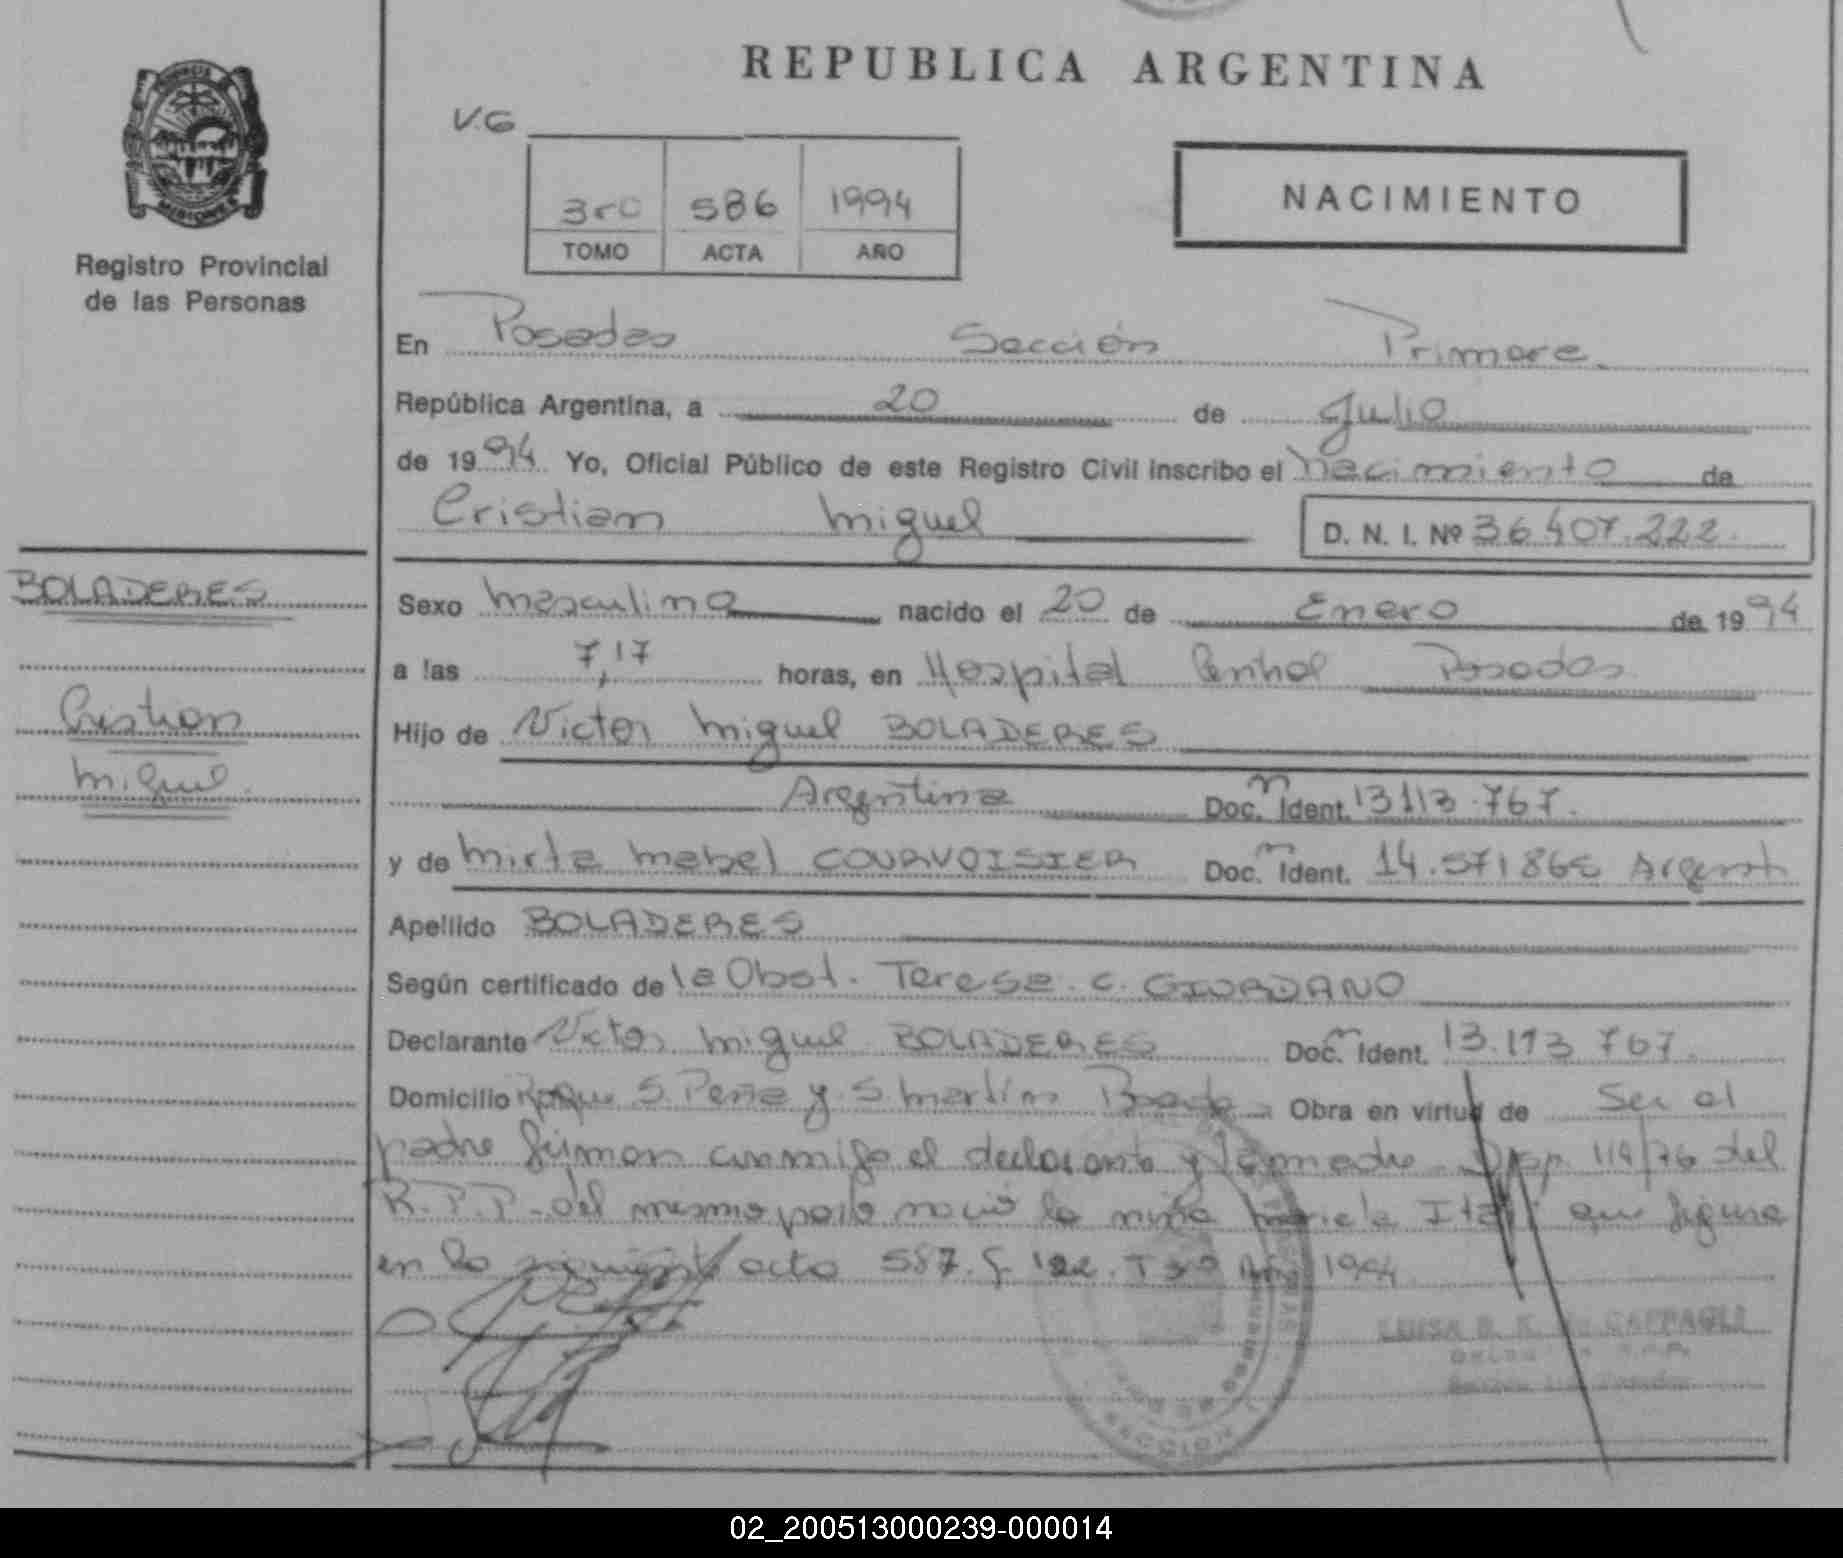 REPUBLICA ARGENTINA
V.G
3ro 586 1994
TOMO ACTA AÑO
NACIMIENTO
PROVINCIA
MISIONES
Registro Provincial
de las Personas
En Posadas Sección Primera
República Argentina, a 20 de Julio
de 1994 Yo, Oficial Público de este Registro Civil inscribo el nacimiento de
Cristian Miguel D. N. I. Nº 36.407.222.
BOLADERES
Cristian
Miguel.
Sexo masculino nacido el 20 de Enero de 1994
a las 7,17 horas, en Hospital Central Posadas
Hijo de Victor Miguel BOLADERES
Argentina Doc. Ident. 13113.767.
y de Mirta Mabel COURVOISIER Doc. Ident. 14.571868 Argent
Apellido BOLADERES
Según certificado de la Obst. Teresa. C. GIORDANO
Declarante Victor Miguel BOLADERES Doc. Ident. 13.113 767.
Domicilio Roque S. Peña y S. Martín Posadas Obra en virtud de Ser el
padre firman conmigo el declarante y la madre Disp. 119/76 del
R.P.P. del mismo parto nació la niña que figura
en la siguiente acta 587. 1994
LUISA B. K. de CAPPAGLI
SECCION 1
02_200513000239-000014